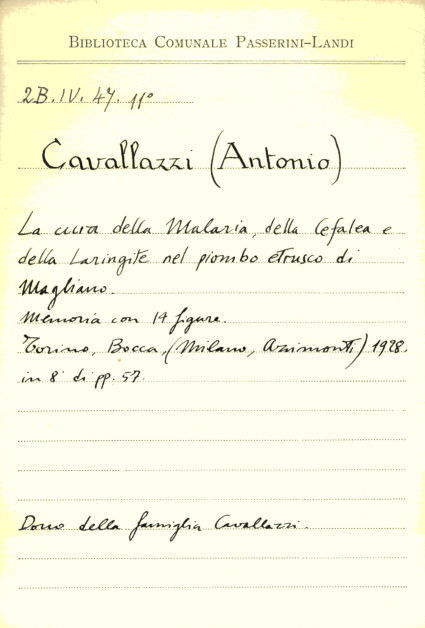 BIBLIOTECA COMUNALE PASSERINI-LANDI
2B.IV.47.11º
Cavallazzi (Antonio)
La cura della Malaria, della Cefalea e
della Laringite nel piombo etrusco di
Magliano.
Memoria con 14 figure.
Torino, Bocca, (Milano, Azimonti) 1928.
in 8º di pp. 57.
Dono della famiglia Cavallazzi.